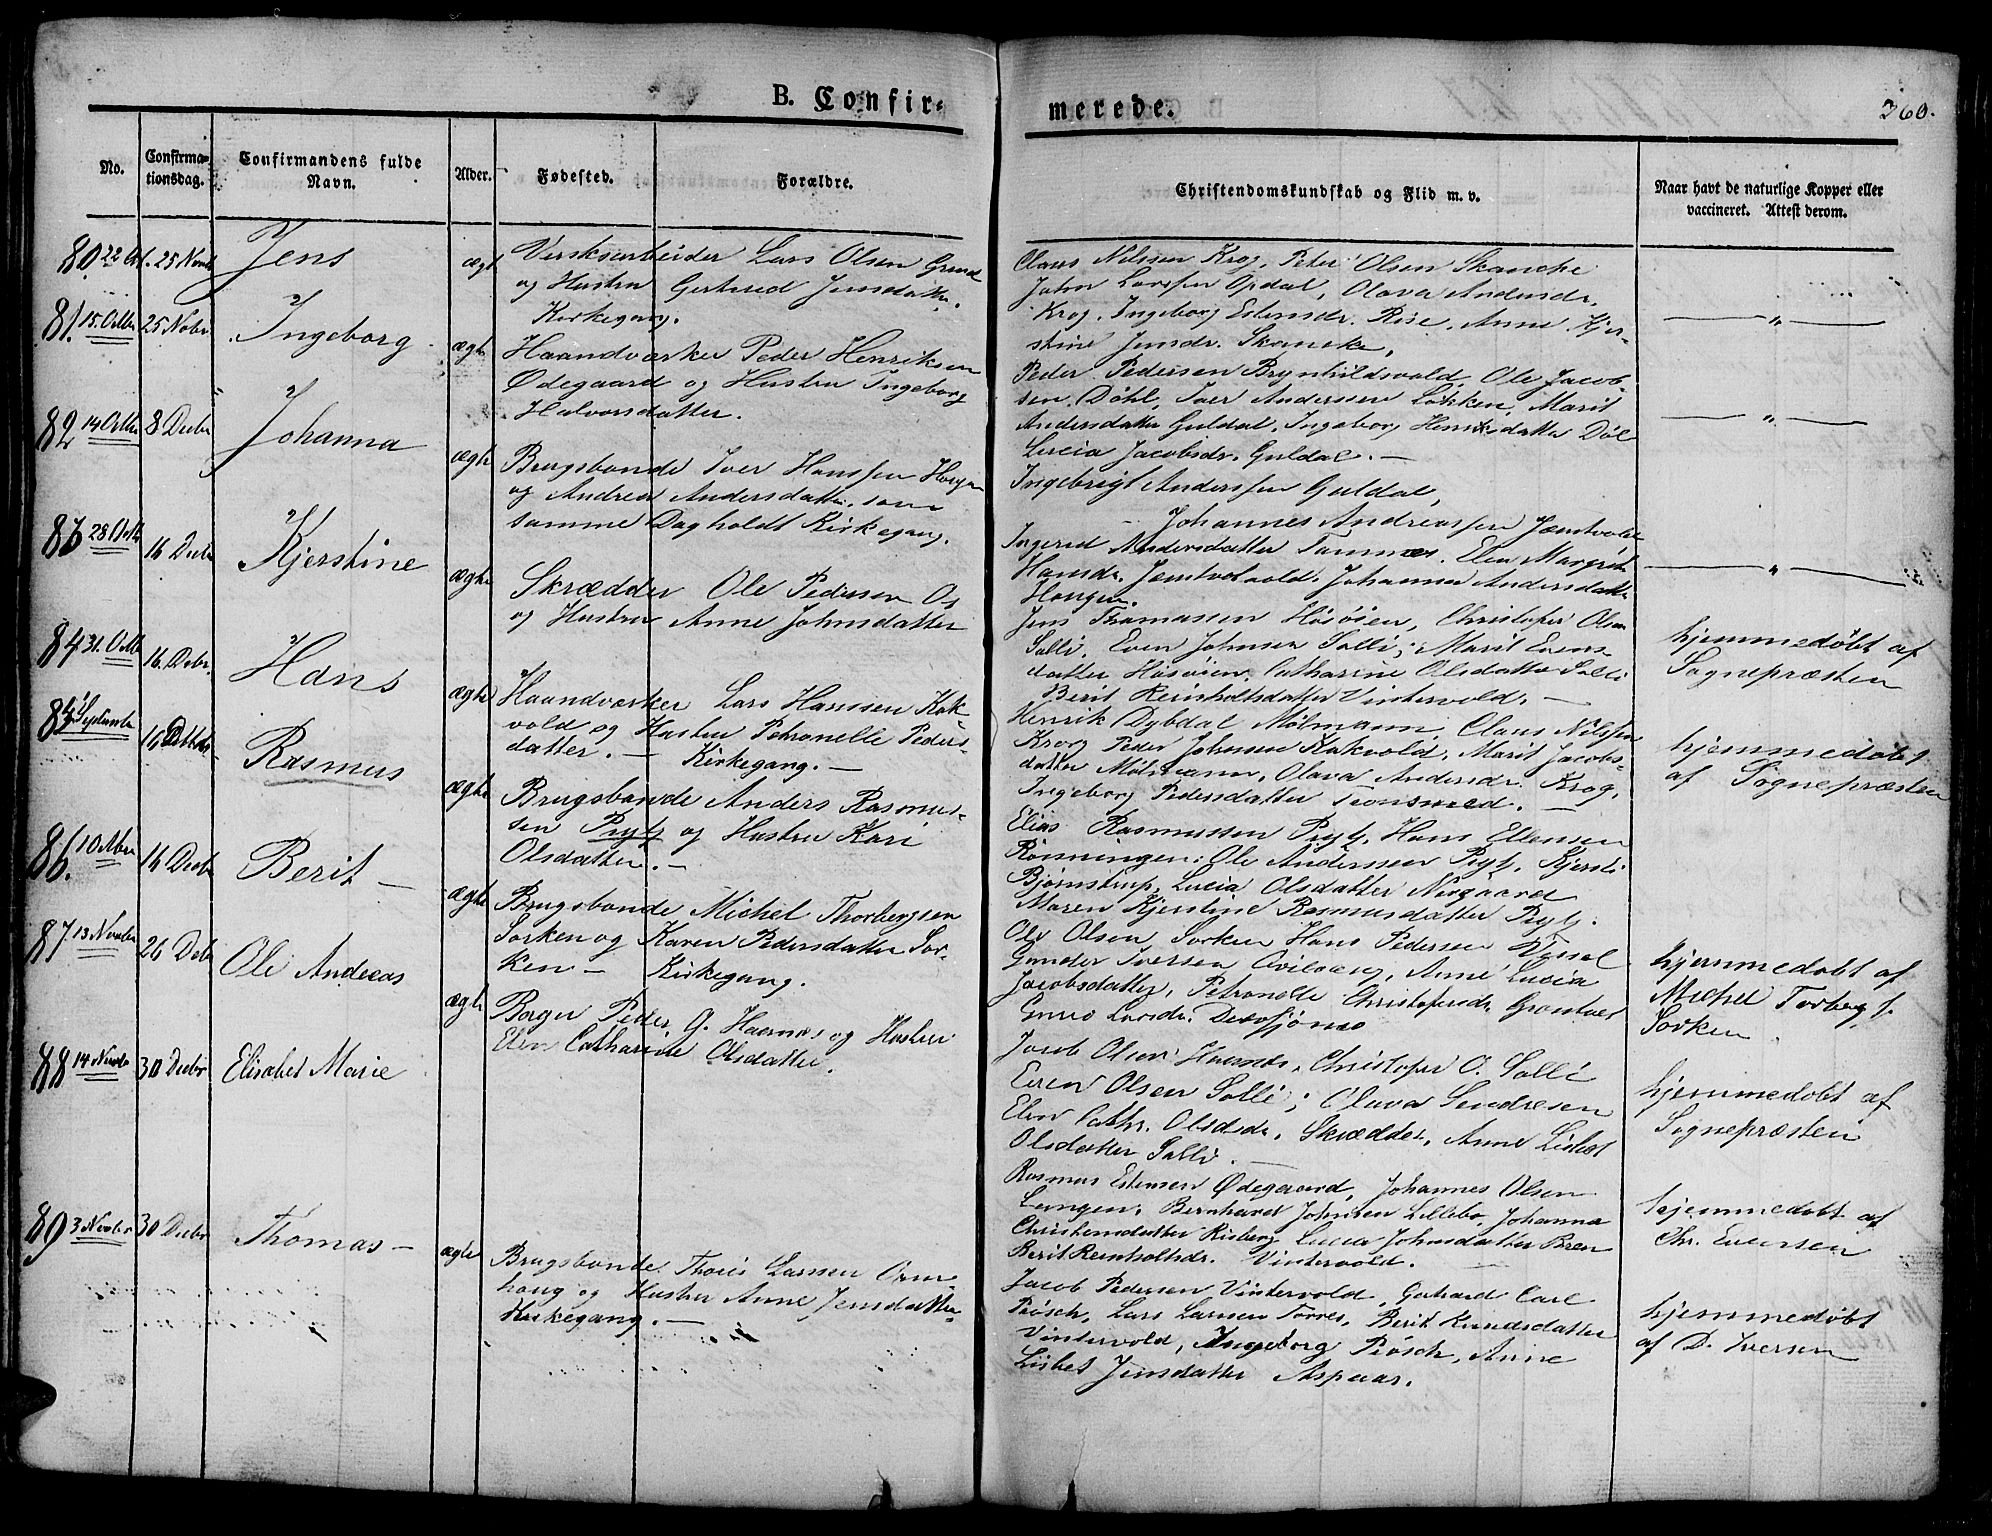 B. Confir-
merede.
360.
No.
Confirma-
tionsdag.
Confirmandens fulde
Navn.
Alder.
Fødested.
Forældre.
Christendomskundskab og Flid m. v.
Naar havt de naturlige Kopper eller
vaccineret. Attest derom.
80. 22 Oct. 25 Novb Jens ægt
Lars Olsen
og Hustru Gertrud Jensdatter.
Kirkegang.
Claus Nilssen Krog, Peter Olsen Skancke
John Larssen Opdal, Olava Andersdr.
Krog, Ingeborg Estensdr. Rise, Anne Kjer-
stine Jensdr. Skancke,
81. 15. Octbr 25 Nobr. Ingeborg ægte
Haandværker Peder Henriksen
Ødegaard og Hustru Ingeborg
Halvorsdatter.
Peder Pedersen Brynhildsvold, Ole Jacob-
sen Döhl, Iver Anderssen Løkken, Marit
Andersdatter Guldal, Ingeborg Henriksdatter Döl
Lucia Jacobsdr. Guldal. —
— „ —
82 14 Octbr 8 Decbr Johanna ægte
Brugsbonde Iver Hanssen Hougen
og Andrea Andersdatter, som
samme Dag holdt Kirkegang.
Ingebrigt Anderssen Guldal,
Johannes Andreassen Jemtvold
Ingerid Andersdatter Tamnes. Elen Margrete
Hansdr. Jemtvold. Johanna Andersdatter
Hougen.
— „ —
83 28 Octb 16 Decbr Kjerstine ægte
Skrædder Ole Pedersen Os
og Hustru Anne Johnsdatter
Jens Thomassen Høsøien, Christopher Olsen
Sølli, Even Johnsen Sølli; Marit Evens-
datter Høsøien, Catharine Olsdatter Sølli
Berit Reinholtsdatter Vintervold. —
— „ —
84 31. Octb 16. Debr. Hans ægte
Haandværker Lars Hanssen Kok-
vold og Hustru Petronelle Peders-
datter. — Kirkegang. —
Henrik Dybdal Mølmann, Claus Nilssen
Krog Peder Johnsen Kokvold, Marit Jacobs-
datter Mølmann, Olava Andersdr. Krog,
Ingeborg Pedersdatter Tronsmed. —
hjemmedøbt af
Sognepræsten
85 Septembr 16 Debr. Rasmus ægte
Brugsbonde Anders Rasmus-
sen Prytz og Hustru Kari
Olsdatter. —
Elias Rasmussen Prytz, Hans Ellensen
Rønningen. Ole Anderssen Prytz, Kjersti
Bjørnstrup, Lucia Olsdatter Norgaard
Maren Kjerstine Rasmusdatter Prytz.
hjemmedøbt
af Sognepræsten
86. 10 Nbr 16 Decbr Berit — ægte
Brugsbonde Michel Thorbergsen
Sorken og Karen Pedersdatter Sor-
ken — Kirkegang.
Ole Olsen Sorken Hans Pedersen
Gunder Iversen Anne Lucia
Jacobsdatter, Petronelle Christophersdr. Grøntvedt
Larsdr.
hjemmedøbt af
Michel Torbergs.
Sorken
87 13 Novbr 26 Debr Ole Andreas ægte
Borger Peder G. Haanæs og Hustru
Elen Catharine Olsdatter.
Jacob Olsen Haanæs, Christopher O. Sølli
Even Olsen Sølli; Olava Sendresen
Elen Cathr. Olsdr. Skrædder, Anne Lisbet
Olsdatter Sølli. —
hjemmedøbt af
Sognepræsten
88 14 Novbr 30 Decbr Elisabet Marie
Rasmus Estensen Ødegaard, Johannes Olsen
Langen. Bernhard Johnsen Lillebo, Johanna
Christensdatter Risberg Lucia Johnsdatter Bren
Berit Reinholtsdr. Vintervold.
hjemmedøbt af
Chr. Eversen
89 3 Novbr 30 Decbr Thomas — ægte
Brugsbonde Thoris Larssen Orm-
houg og Hustru Anne Jensdatter
Kirkegang. —
Jacob Pedersen Vintervold, Gerhard Carl
Prösch, Lars Larssen Torres, Berit Knudsdatter
Vintervold, Ingeborg Prösch, Anne
Lisbet Jensdatter Aspaas.
hjemmedøbt
af D. Iversen